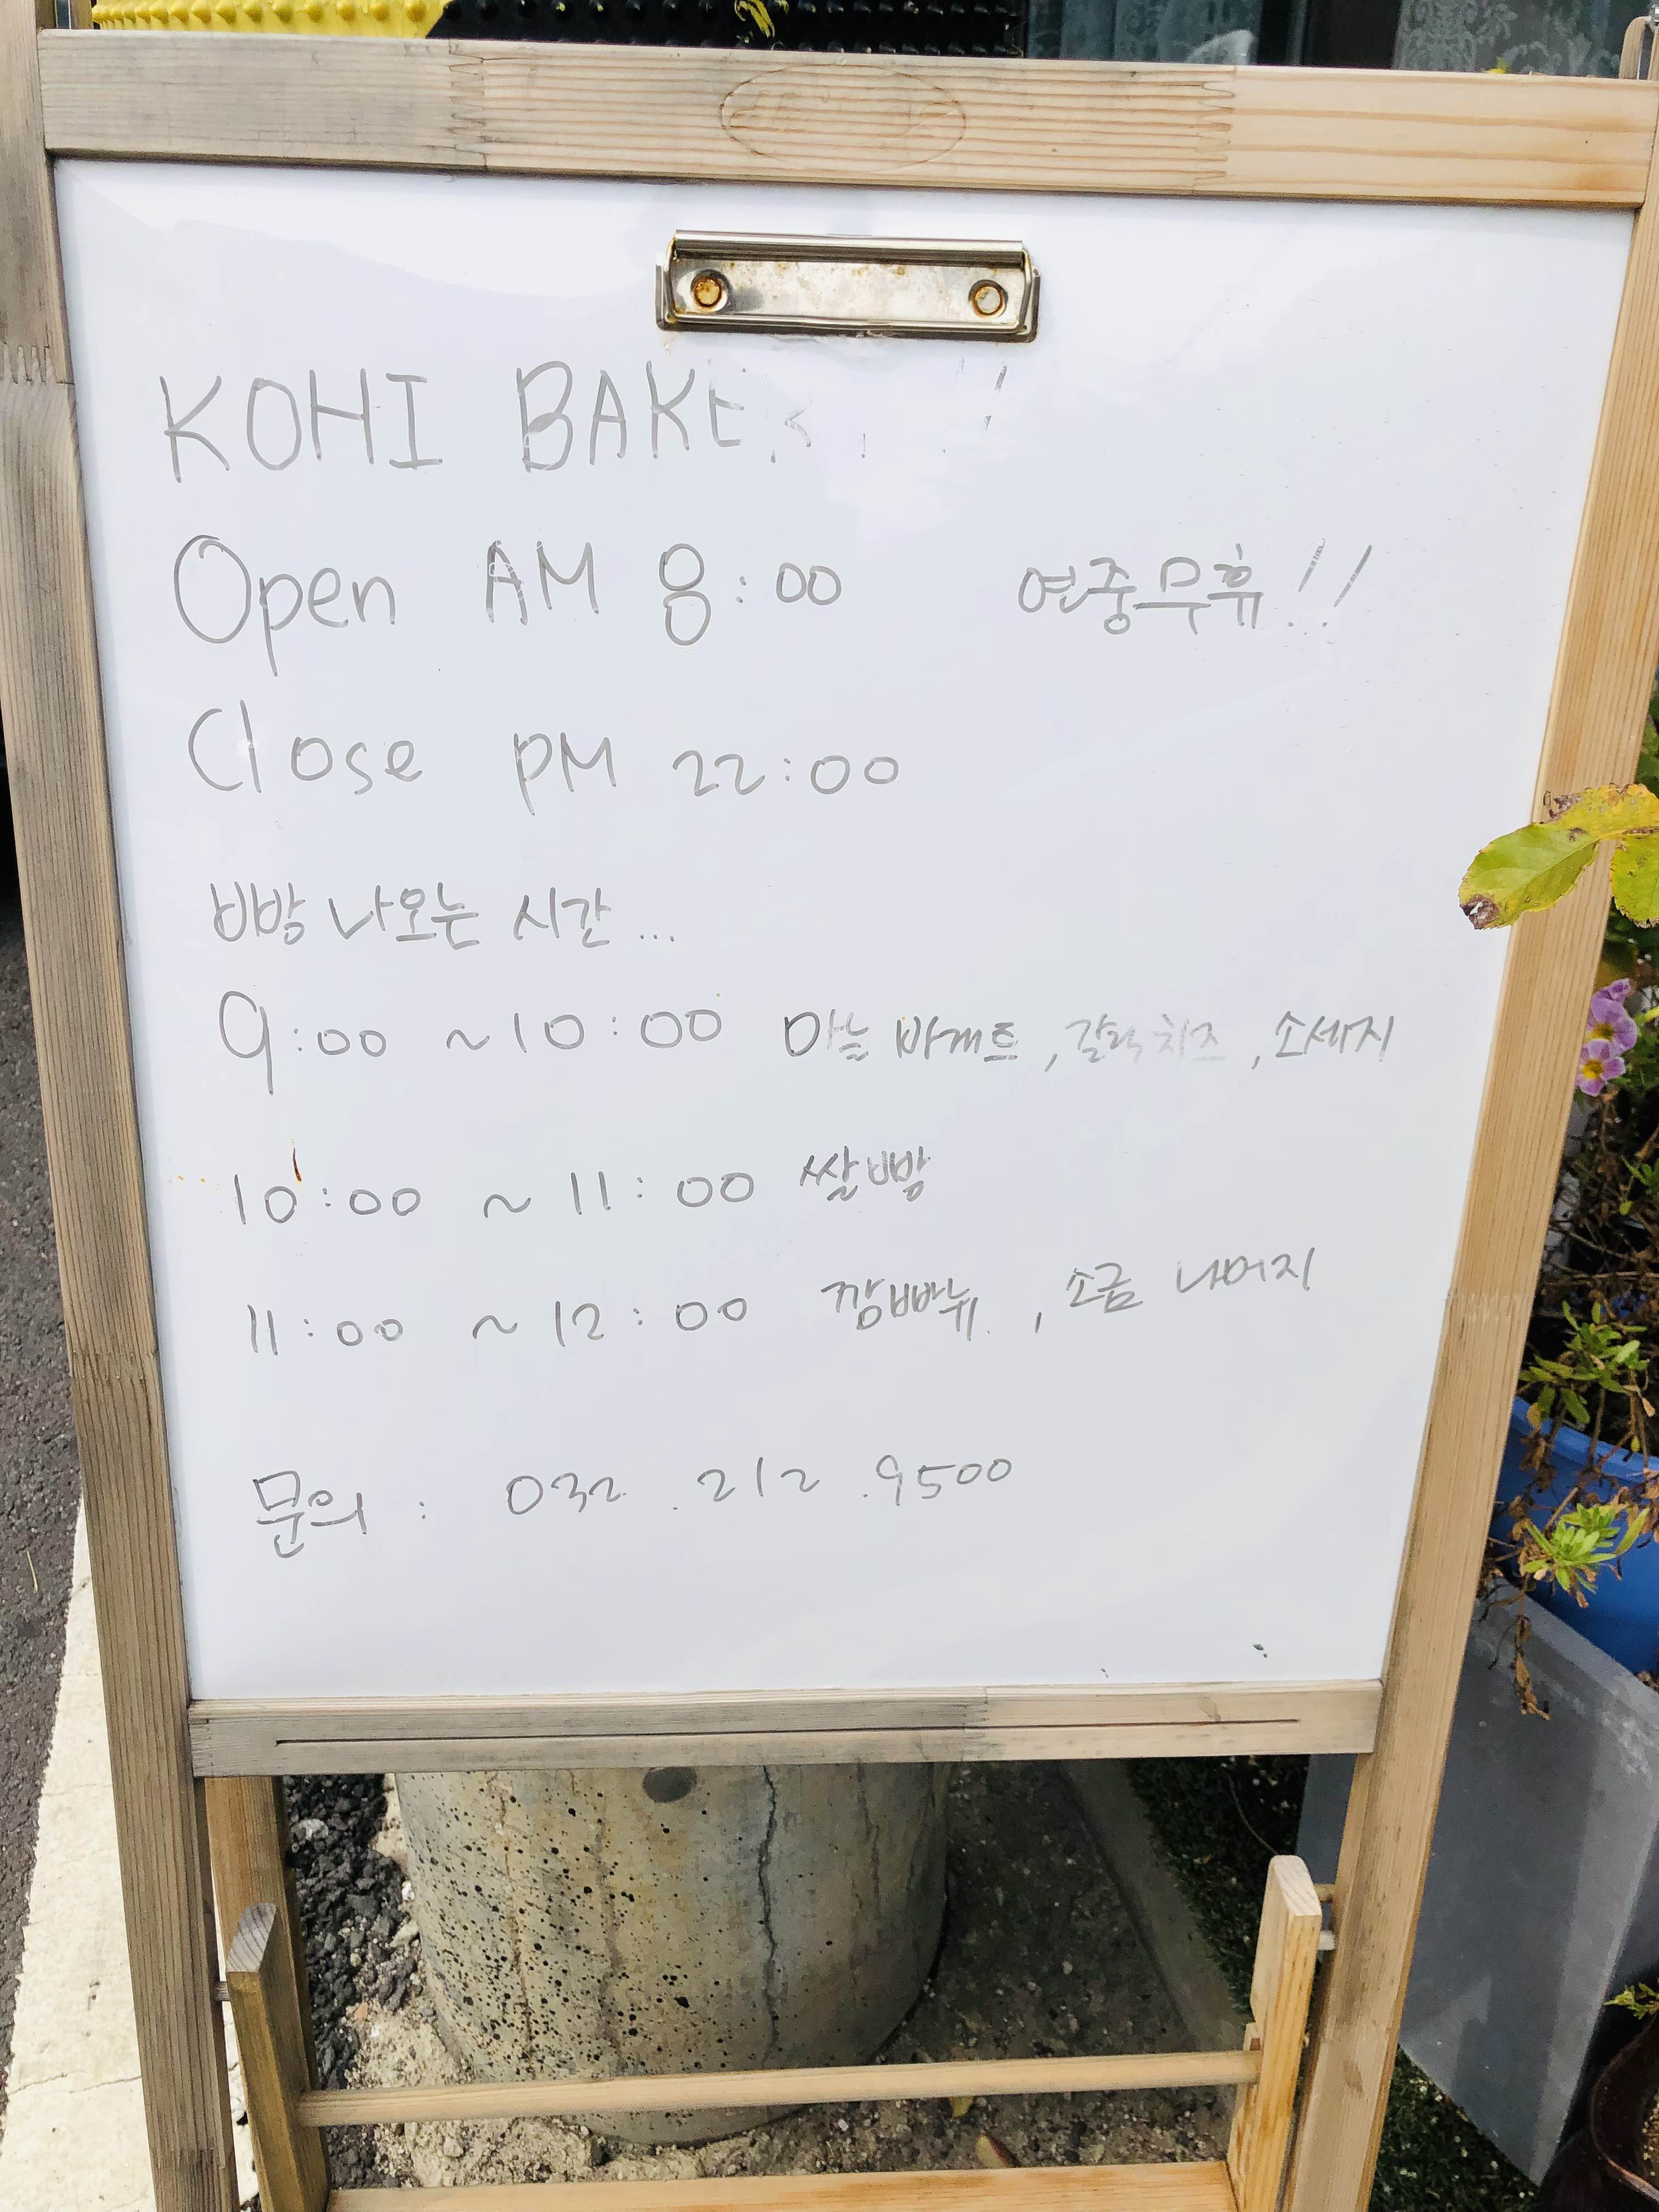 KOHI BAKE
Open AM 8:00 연중무휴!!
Close PM 22:00
빵 나오는 시간...
9:00 ~10:00 마늘 바게트, 갈릭치즈, 소세지
10:00 ~ 11:00 쌀빵
11:00 ~12:00 깜빠뉴, 소금 나머지
문의 : 032.212.9500